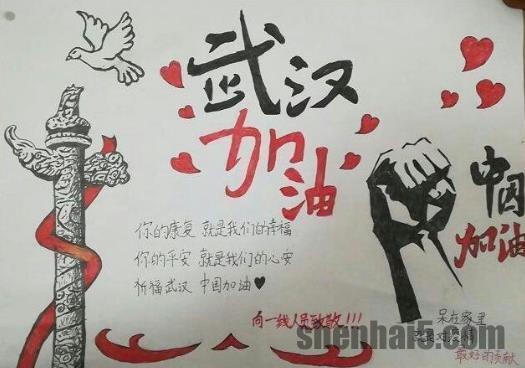 武汉
加油
中国
加油
你的康复 就是我们的幸福
你的平安 就是我们的心安
祈福武汉 中国加油♥
向一线人员致敬!!!
呆在家里
最好的贡献
shenhai5.com